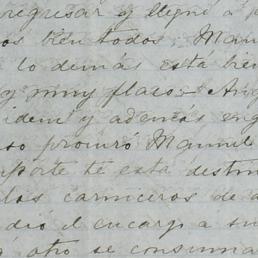 regresar y llegué a p
os bien todos. Manu
lo demás está he
y muy flaco. Ang
idem y además eng
so procuró Manuel
porte te está destin
los carniceros de a
dió el encargo a su
otro se consuma